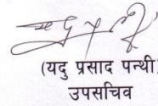 (यदु प्रसाद पन्थी)
उपसचिव